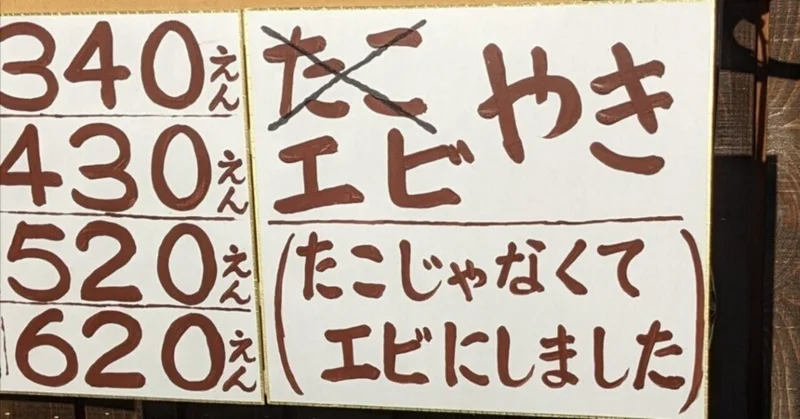 340えん
430えん
520えん
620えん
たこ やき
エビ
(たこじゃなくて
エビにしました)